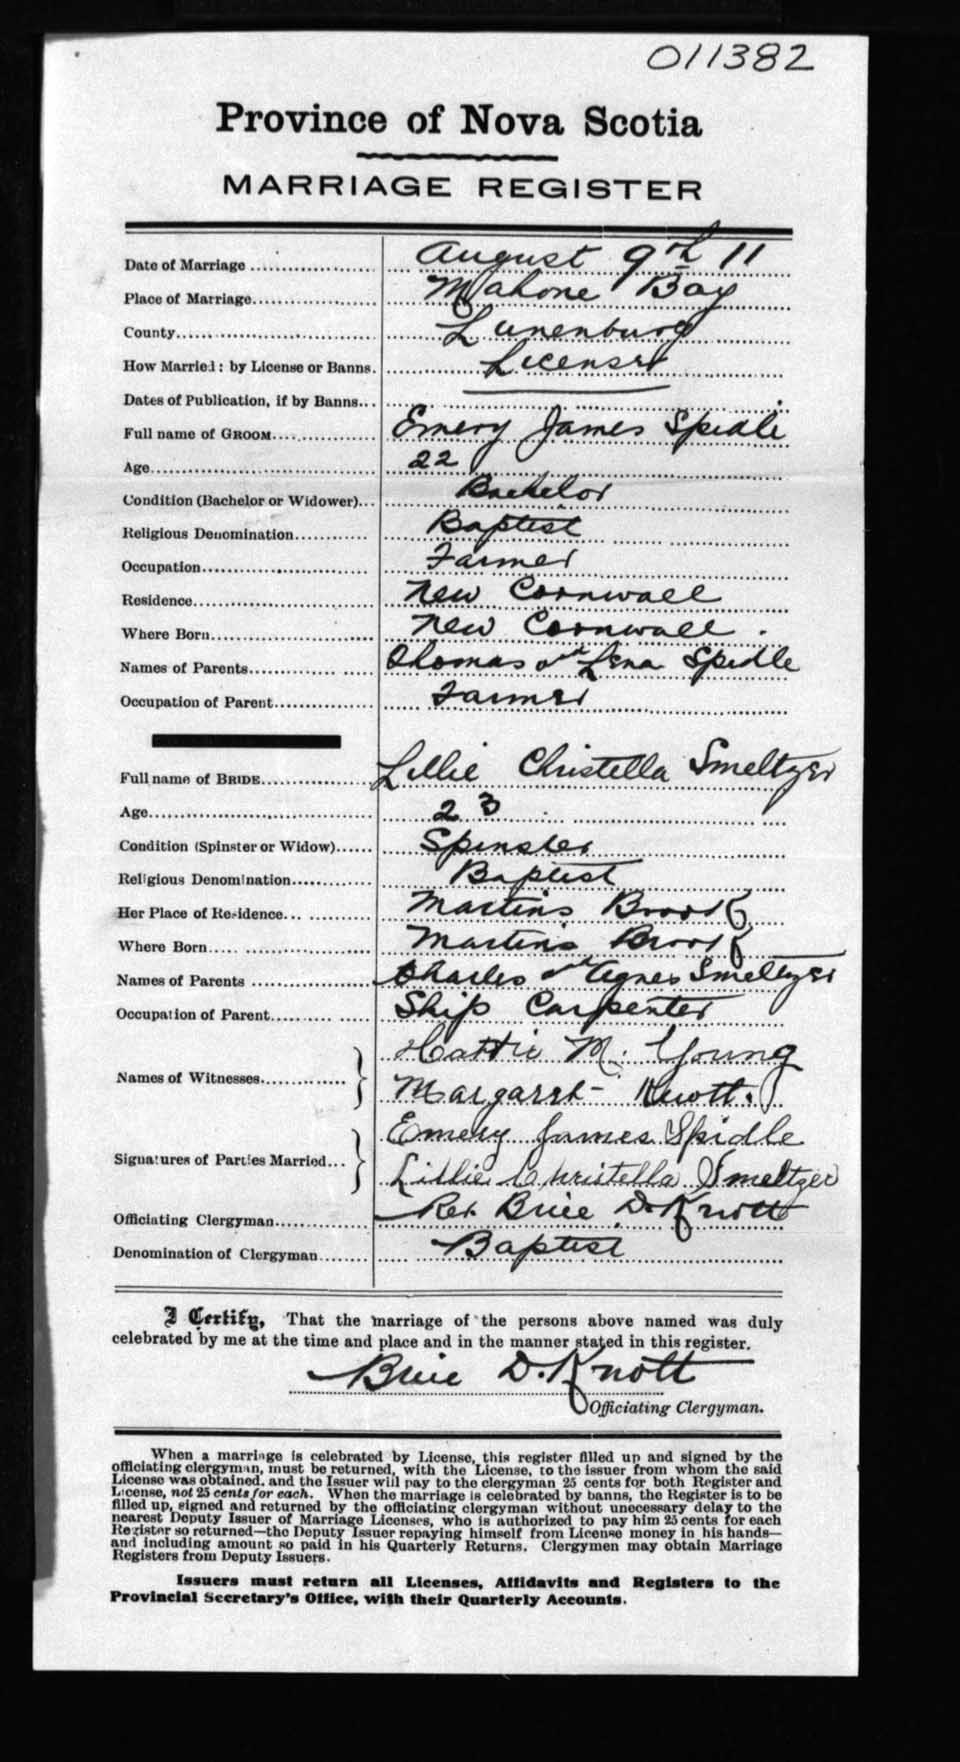 011382
Province of Nova Scotia
MARRIAGE REGISTER
Date of Marriage August 9th 11
Place of Marriage Mahone Bay
County Lunenburg
How Married: by License or Banns. License
Dates of Publication, if by Banns
Full name of GROOM Emery James Spidle
Age 22
Condition (Bachelor or Widower) Bachelor
Religious Denomination Baptist
Occupation Farmer
Residence New Cornwall
Where Born New Cornwall.
Names of Parents Thomas and Lena Spidle
Occupation of Parent Farmer
Full name of BRIDE Lillie Christella Smeltzer
Age 23
Condition (Spinster or Widow) Spinster
Religious Denomination Baptist
Her Place of Residence Martins Brook
Where Born Martins Brook
Names of Parents Charles and Agnes Smeltzer
Occupation of Parent Ship Carpenter
Names of Witnesses Hattie M. Young
Margaret Knott.
Signatures of Parties Married Emery James Spidle
Lillie Christella Smeltzer
Officiating Clergyman Rev. Brice D. Knott
Denomination of Clergyman Baptist
I Certify, That the marriage of the persons above named was duly
celebrated by me at the time and place and in the manner stated in this register.
Brice D. Knott
Officiating Clergyman.
When a marriage is celebrated by License, this register filled up and signed by the
officiating clergyman, must be returned, with the License, to the issuer from whom the said
License was obtained, and the Issuer will pay to the clergyman 25 cents for both Register and
License, not 25 cents for each. When the marriage is celebrated by banns, the Register is to be
filled up, signed and returned by the officiating clergyman without unecessary delay to the
nearest Deputy Issuer of Marriage Licenses, who is authorized to pay him 25 cents for each
Register so returned—the Deputy Issuer repaying himself from License money in his hands—
and including amount so paid in his Quarterly Returns. Clergymen may obtain Marriage
Registers from Deputy Issuers.
Issuers must return all Licenses, Affidavits and Registers to the
Provincial Secretary's Office, with their Quarterly Accounts.